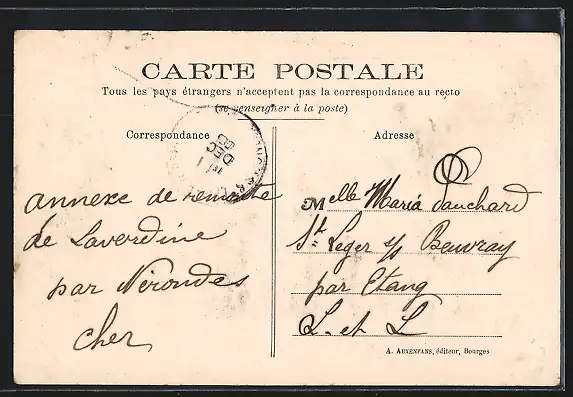 CARTE POSTALE
Tous les pays étrangers n'acceptent pas la correspondance au recto
(se renseigner à la poste)
Correspondance
Adresse
annexe de remonte
de Laverdine
par Nérondes
Cher
Melle Maria Pauchard
St Leger s/s Beuvray
par Etang
S. et L
A. AUXENFANS, éditeur, Bourges